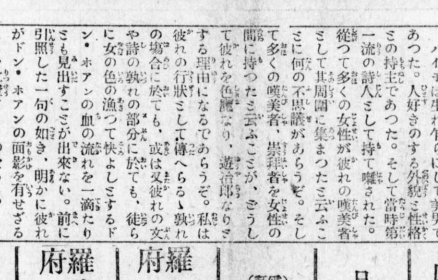 あつた。人好きのする外貌と性格
との持主であつた。そして當時第
一流の詩人として持て囃された。
從つて多くの女性が彼れの嘆美者
として其周圍に集まつたと云ふこ
とに何の不思議があらうぞ。そし
て多くの嘆美者、崇拜者を女性の
間に持つたと云ふことが、どうし
て彼れを色魔なり、遊冶郎なりと
する理由になるであらうぞ。私は
彼れの行狀として傳へらるゝ孰れ
の場合に於ても、或は又彼れの文
や詩の孰れの部分に於ても、徒ら
に女の色の漁つて快よしとするド
ン・ホアンの血の流れを一滴たり
とも見出すことが出來ない。前に
引照した一句の如き、明かに彼れ
がドン・ホアンの面影を有せざる
羅府
羅府